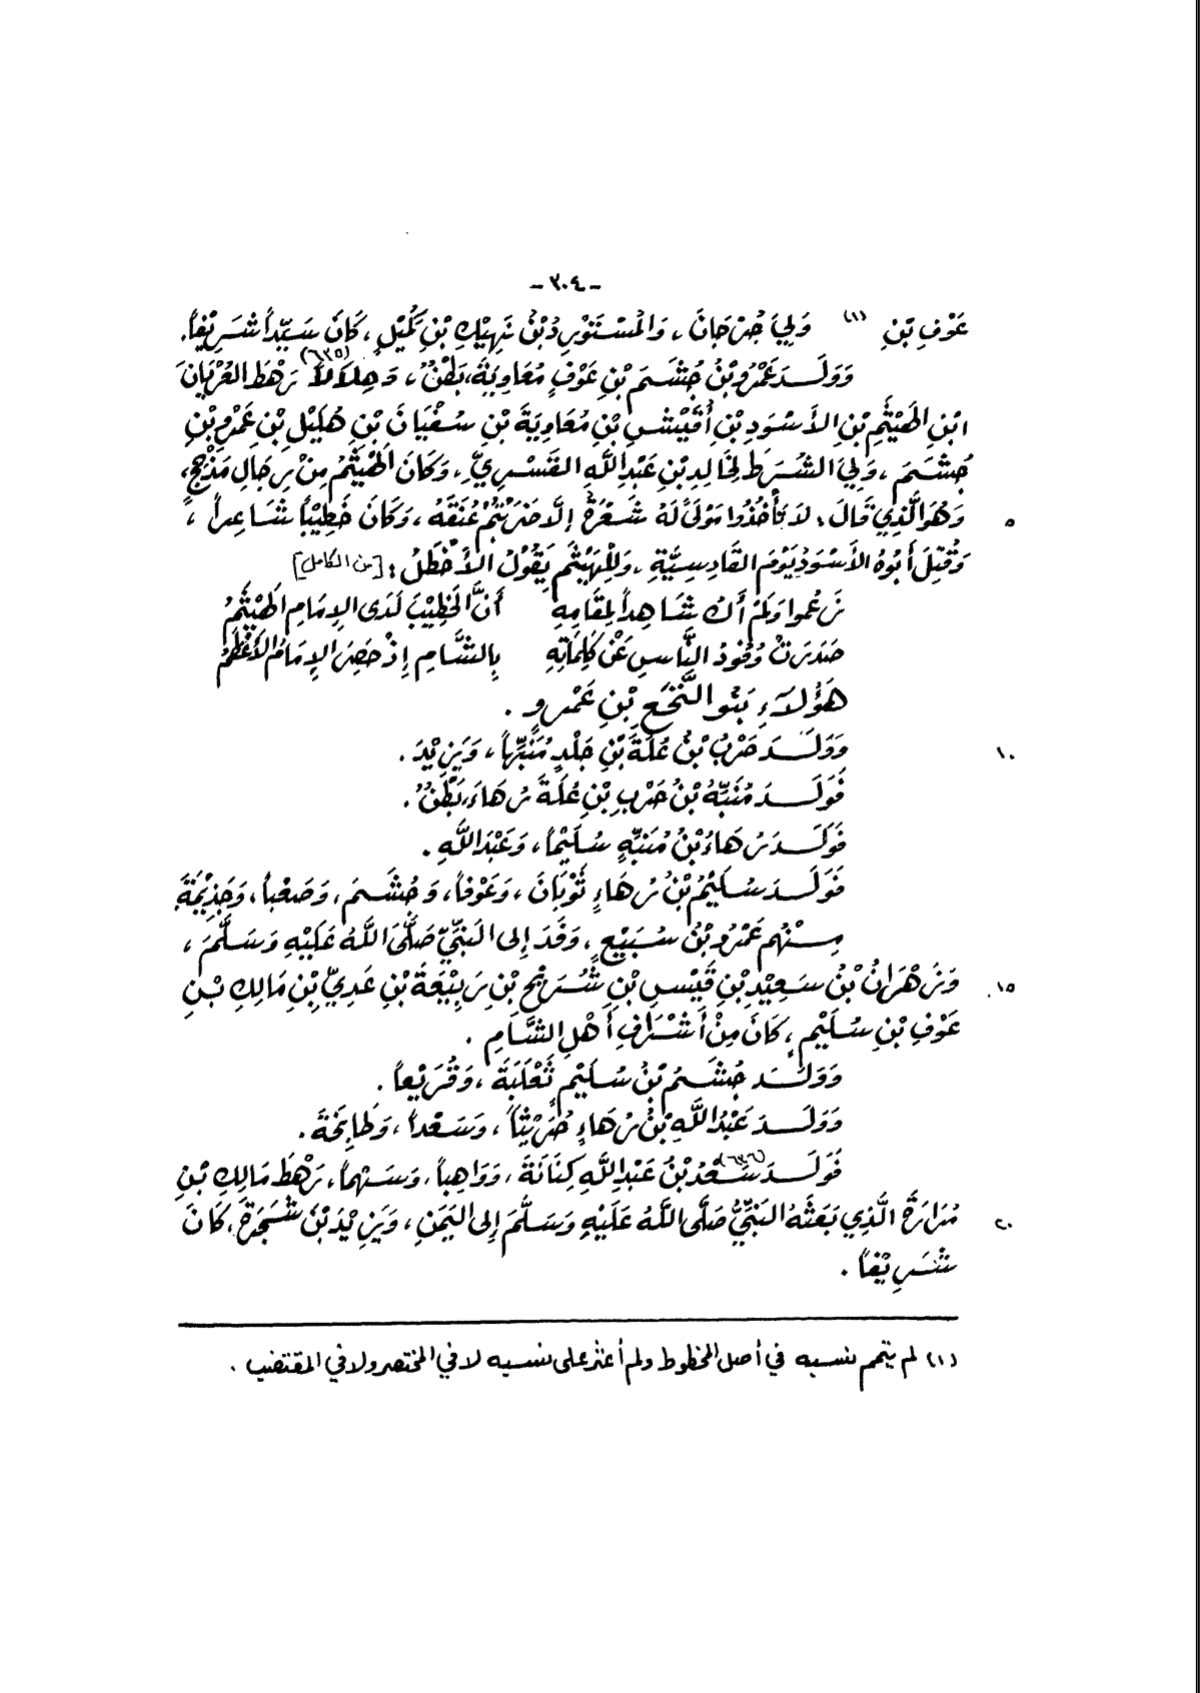 -٣٠٤-
عَوْفِ بْنِ (١) وَلِيَ جُرْجَانَ، وَالْمُسْتَوْرِدُ بْنُ نَهِيْكِ بْنِ كُمَيْلٍ، كَانَ سَيِّداً شَرِيْفاً.
وَوَلَدَ عَمْرُو بْنُ جُشَمَ بْنِ عَوْفٍ مُعَاوِيَةَ، بَطْنٌ، وَهِلاَلاً (٦٣٥) رَهْطَ العُرْيَانَ
ابْنِ الهَيْثَمِ بْنِ الأَسْوَدِ بْنِ أُقَيْشِ بْنِ مُعَاوِيَةَ بْنِ سُفْيَانَ بْنِ هُلَيْلِ بْنِ عَمْرِو بْنِ
جُشَمَ، وَلِيَ الشُّرَطَ لِخَالِدِ بْنِ عَبْدِ اللَّهِ القَسْرِيِّ، وَكَانَ الهَيْثَمُ مِنْ رِجَالِ مَذْحِجٍ،
٥ وَهُوَ الَّذِي قَالَ: لاَ تَأْخُذُوا مَوْلَىً لَهُ شَعْرَةٌ إلاَّ ضَرَبْتُمْ عُنُقَهُ، وَكَانَ خَطِيْباً شَاعِراً،
وَقُتِلَ أَبُوهُ الأَسْوَدُ يَوْمَ القَادِسِيَّةِ، وَلِلْهَيْثَمِ يَقُوْلُ الأَخْطَلُ: [من الكامل]
زَعَمُوا وَلَمْ أَكُ شَاهِداً لِمَقَامِهِ أَنَّ الخَطِيْبَ لَدَى الإِمَامِ الهَيْثَمُ
صَدَرَتْ وُفُودُ النَّاسِ عَنْ كَلِمَاتِهِ بِالشَّامِ إِذْ حَصِرَ الإِمَامُ الأَعْظَمُ
هَؤُلاَءِ بَنُو النَّخَعِ بْنِ عَمْرٍو.
١٠ وَوَلَدَ حَرْبُ بْنُ عُلَةَ بْنِ جَلْدٍ مُنَبِّهاً، وَيَزِيْدَ.
فَوَلَدَ مُنَبِّهُ بْنُ حَرْبِ بْنِ عُلَةَ رُهَاءَ، بَطْنٌ.
فَوَلَدَ رُهَاءُ بْنُ مُنَبِّهٍ سُلَيْماً، وَعَبْدَ اللَّهِ.
فَوَلَدَ سُلَيْمُ بْنُ رُهَاءٍ ثَوْبَانَ، وَعَوْفاً، وَجُشَمَ، وَصَعْباً، وَجَذِيْمَةَ
مِنْهُم عَمْرُو بْنُ سُبَيْعٍ، وَفَدَ إِلى النَّبِيِّ صَلَّى اللَّهُ عَلَيْهِ وَسَلَّمَ،
١٥ وَزَهْرَانُ بْنُ سَعِيْدِ بْنِ قَيْسِ بْنِ شُرَيْحِ بْنِ رَبِيْعَةَ بْنِ عَدِيِّ بْنِ مَالِكِ بْنِ
عَوْفِ بْنِ سُلَيْمٍ، كَانَ مِنْ أَشْرَافِ أَهْلِ الشَّامِ.
وَوَلَدَ جُشَمُ بْنُ سُلَيْمٍ ثَعْلَبَةَ، وَقُرَيْعاً.
وَوَلَدَ عَبْدُ اللَّهِ بْنُ رُهَاءٍ حُرَيْثاً، وَسَعْداً، وَطَابِخَةَ.
فَوَلَدَ سَعْدُ (٦٣٦) بْنُ عَبْدِ اللَّهِ كِنَانَةَ، وَوَاهِباً، وَسَهْماً، رَهْطَ مَالِكِ بْنِ
٢٠ مُرَارَةَ الَّذِي بَعَثَهُ النَّبِيُّ صَلَّى اللَّهُ عَلَيْهِ وَسَلَّمَ إِلى اليَمَنِ، وَيَزِيْدَ بْنَ شَجَرَةَ، كَانَ
شَرِيْفاً.
(١) لم يتمم نسبه في أصل المخطوط ولم أعثر على نسبه لا في المختصر ولا في المقتضب.